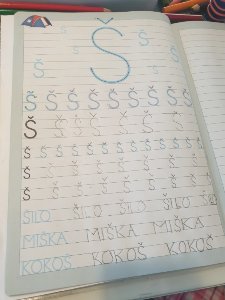 Š
Š Š Š Š
Š Š Š Š Š Š Š Š Š
Š Š Š Š Š Š
Š Š Š Š Š Š Š Š Š Š Š Š
Š Š Š Š Š Š
Š Š Š Š Š Š
ŠILO ŠILO ŠILO ŠILO ŠILO
MIŠKA MIŠKA MIŠKA
KOKOŠ KOKOŠ KOKOŠ